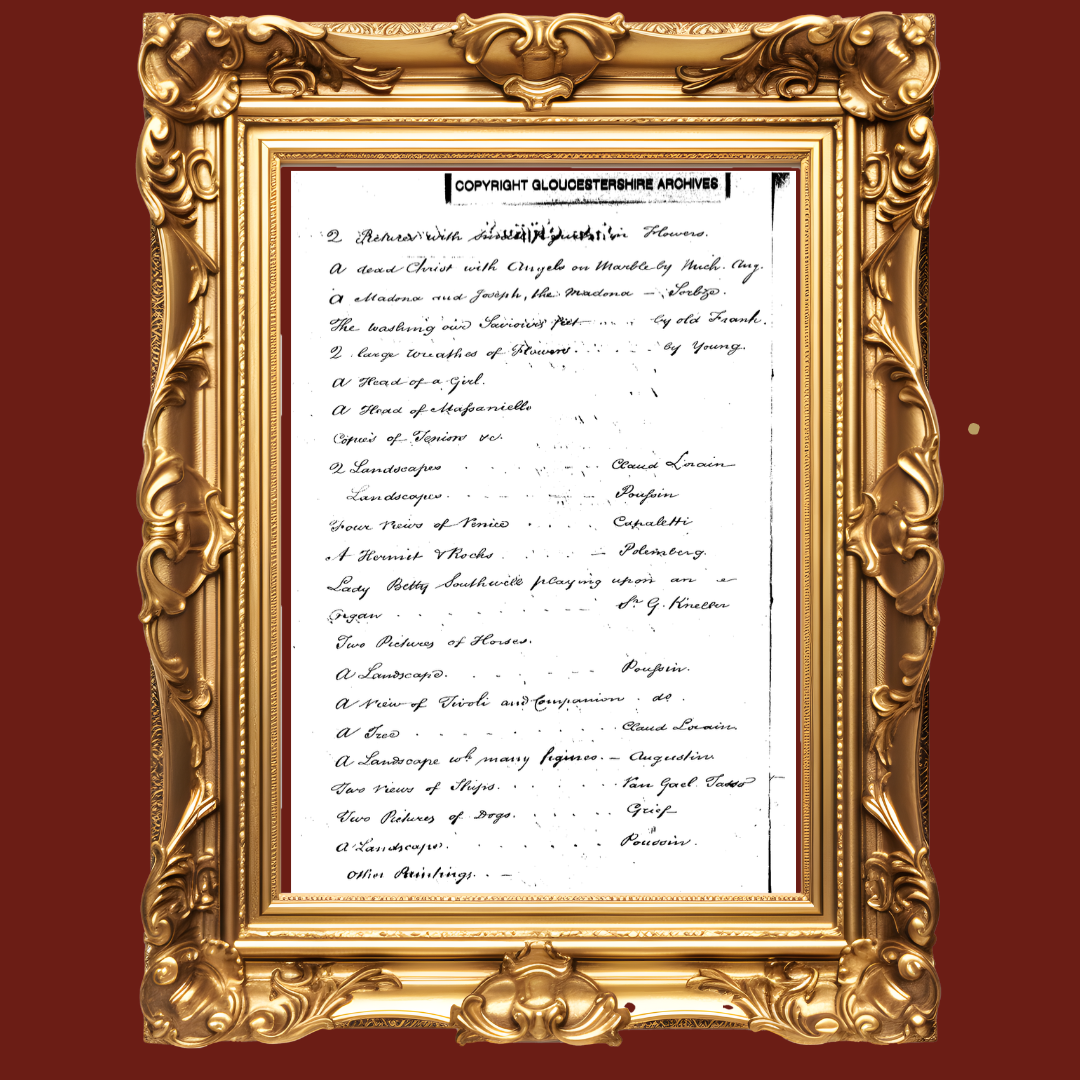 COPYRIGHT GLOUCESTERSHIRE ARCHIVES
2 Pictures with small in Flowers.
A dead Christ with Angels on Marble by Mich. Ang.
A Madona and Joseph, the Madona —
The washing our Saviour's feet .... by old Frank.
2 large wreathes of Flowers ..... by Young.
A Head of a Girl.
A Head of Massaniello
Copies of Teniers &c.
2 Landscapes ...... Claud Lorain
Landscapes ...... Poussin
Four Views of Venice .... Canaletti
A Hermit & Rocks ..... Polemberg.
Lady Betty Southwell playing upon an
Organ ...... Sr. G. Kneller
Two Pictures of Horses.
A Landscape ...... Poussin.
A View of Tivoli and Companion . do.
A Tree ........ Claud Lorain.
A Landscape wh. many figures. — Augustin
Two Views of Ships. ...... Van Gael
Two Pictures of Dogs. ..... Grief
A Landscape. ...... Poussin.
Other Paintings. . —